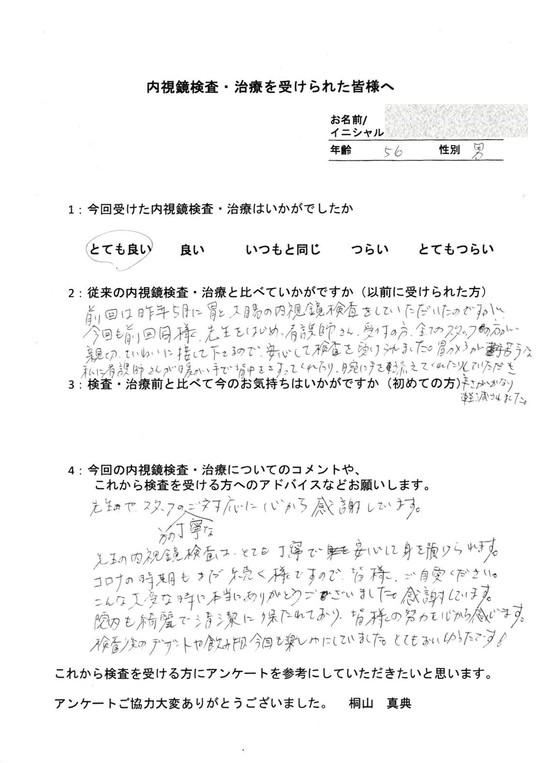 内視鏡検査・治療を受けられた皆様へ
お名前/
イニシャル
年齢 56 性別 男
1：今回受けた内視鏡検査・治療はいかがでしたか
とても良い 良い いつもと同じ つらい とてもつらい
2：従来の内視鏡検査・治療と比べていかがですか（以前に受けられた方）
前回は昨年5月に胃と大腸の内視鏡検査をしていただいたのですが、
今回も前回同様、先生をはじめ、看護師さん、受付の方、全てのスタッフの方が
親切、ていねいに接して下さるので、安心して検査を受けられました。胃のカメラが苦手な
私に看護師さんが暖かい手で背中をさすってくれたり、腕に手を添えてくれたりしていただき
3：検査・治療前と比べて今のお気持ちはいかがですか（初めての方）
辛さがかなり
軽減されました。
4：今回の内視鏡検査・治療についてのコメントや、
これから検査を受ける方へのアドバイスなどお願いします。
先生や、スタッフのご対応に心から感謝しています。
丁寧な
先生の内視鏡検査は、とても丁寧で安心して身を預けられます。
コロナの時期もまだ続く様ですので、皆様、ご自愛ください。
こんな大変な時に本当にありがとうございました。感謝しています。
院内も綺麗で清潔に保たれており、皆様の努力を心から感じます。
検査後のデザートや飲み物、今回も楽しみにしていました。とてもおいしかったです！
これから検査を受ける方にアンケートを参考にしていただきたいと思います。
アンケートご協力大変ありがとうございました。 桐山 真典